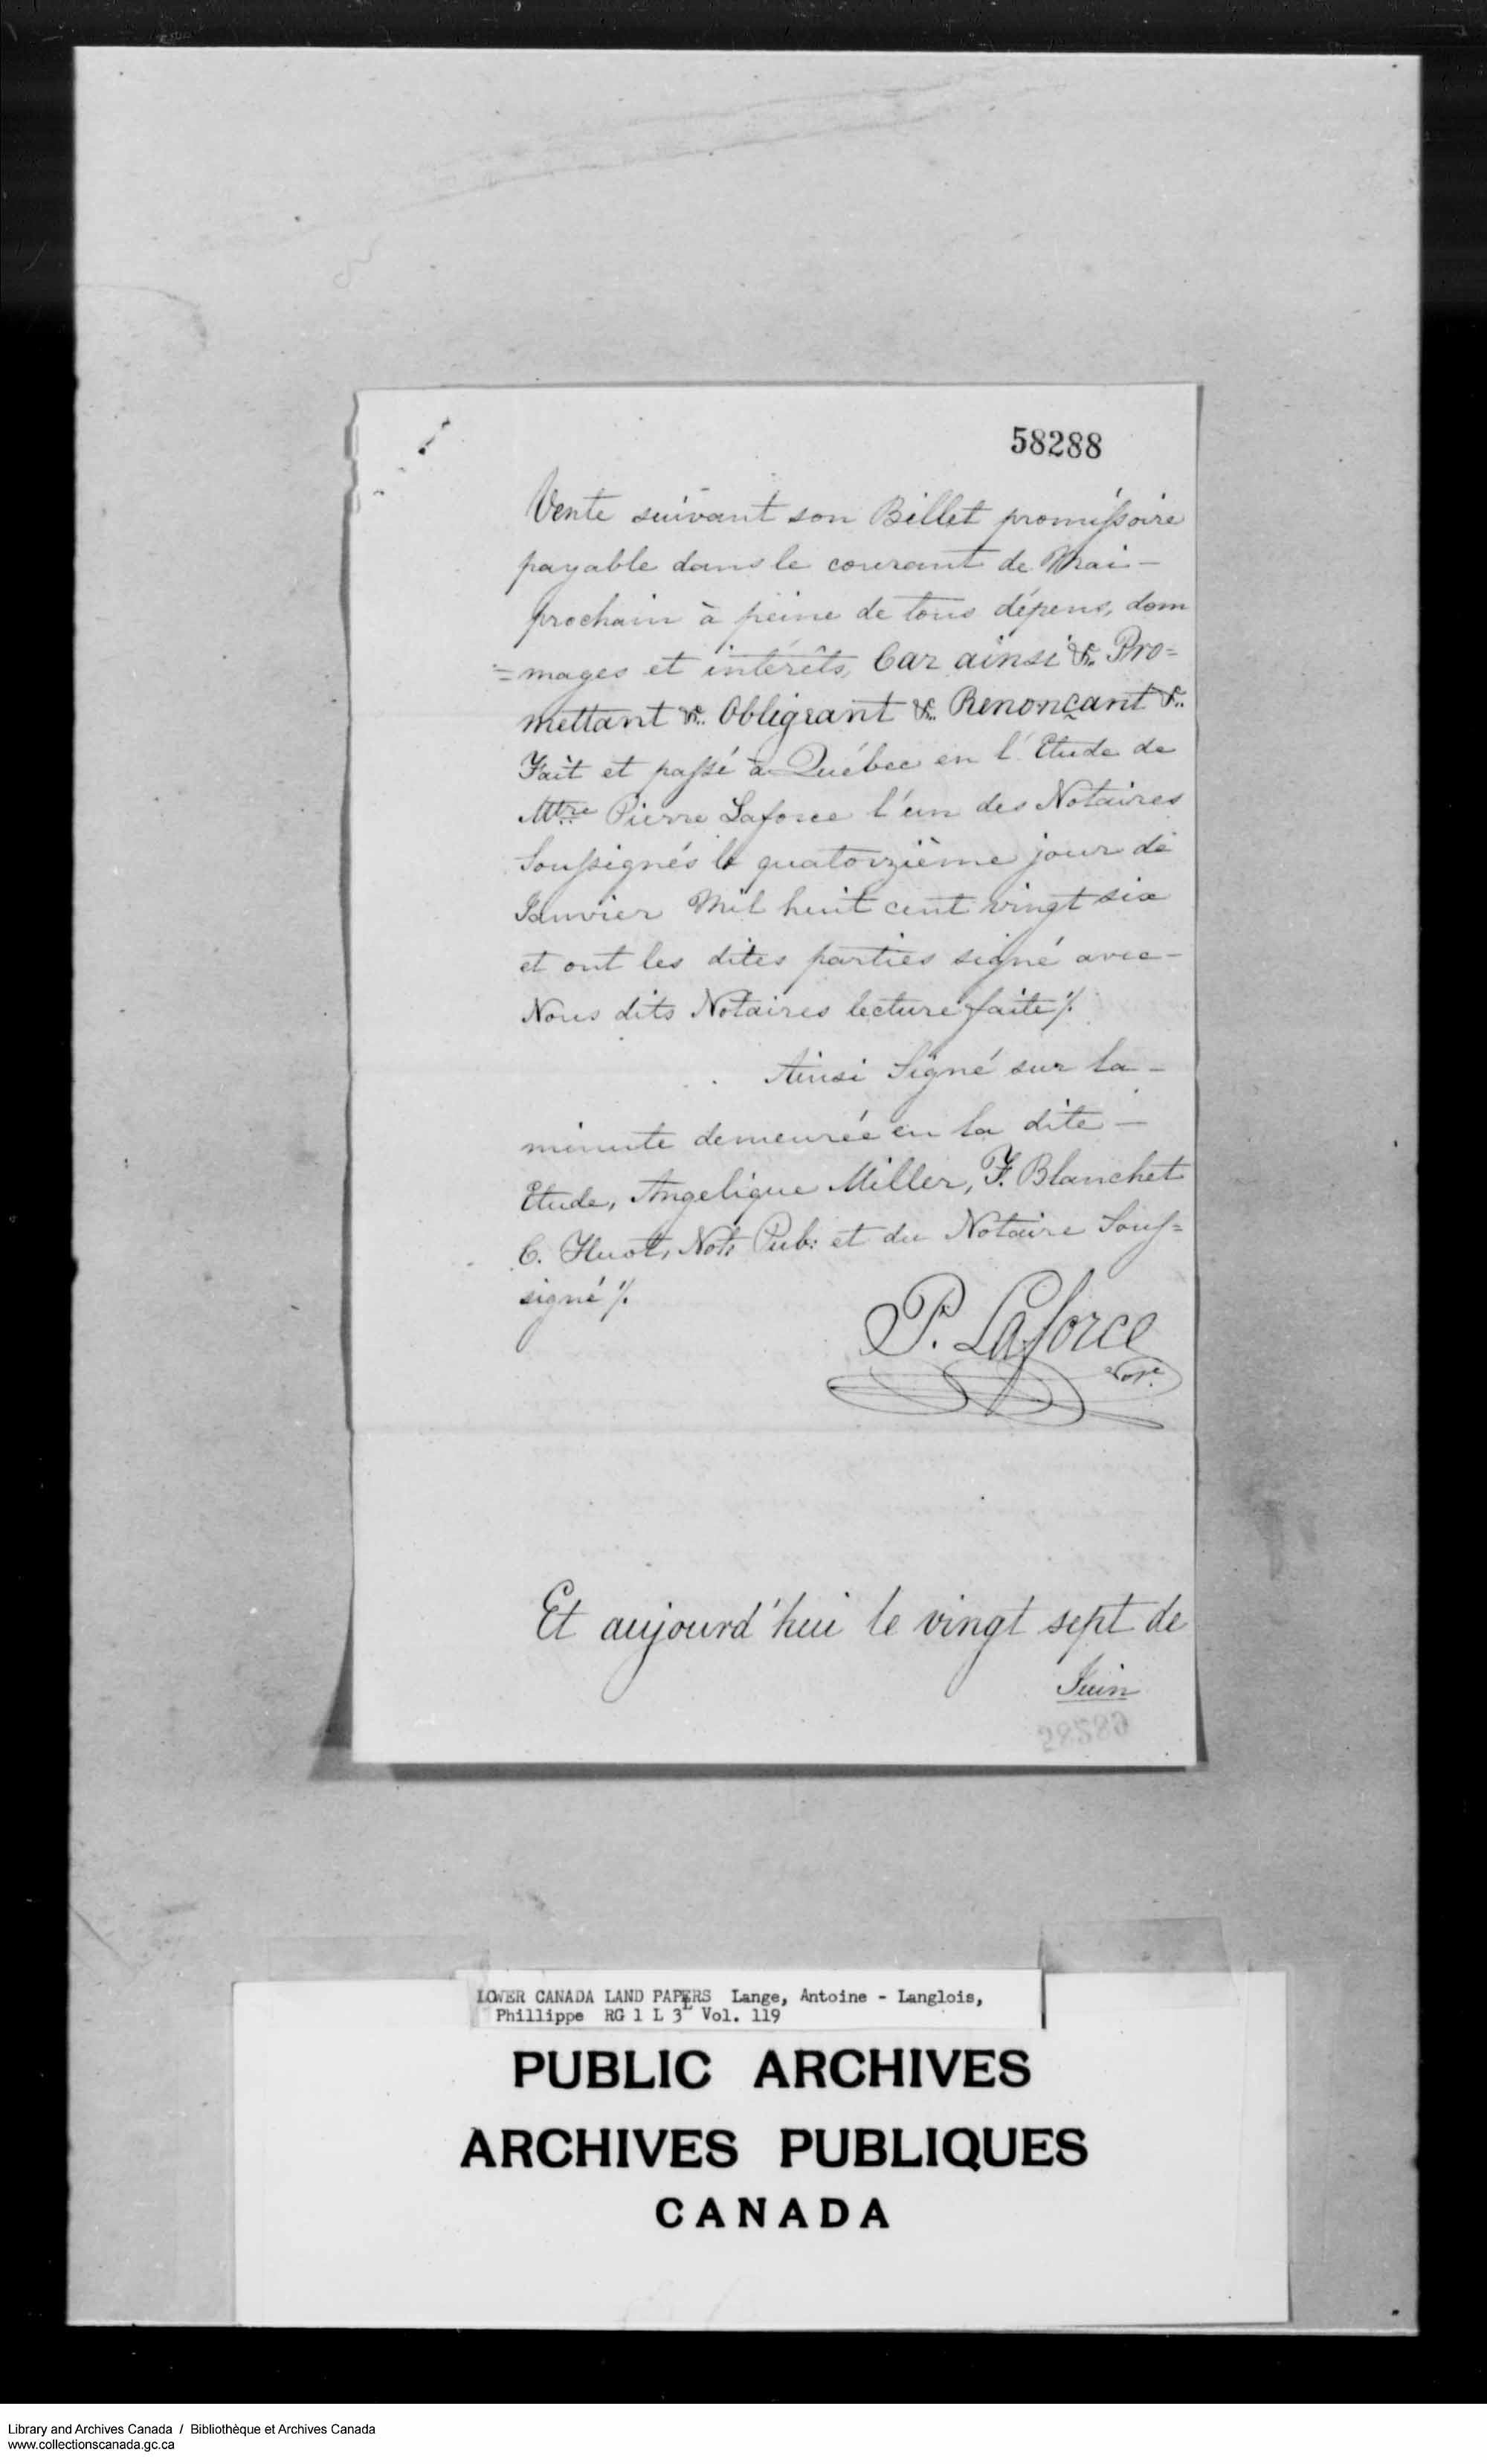 58288
Vente suivant son Billet promissoire
payable dans le courant de Mai –
prochain à peine de tous dépens, dom
= mages et intérêts, Car ainsi &c. Pro=
mettant &c. Obligeant &c. Renonçant &c.
Fait et passé à Québec en l'Etude de
Mtre Pierre Laforce l'un des Notaires
Soussignés le quatorzième jour de
Janvier Mil huit cent vingt six
et ont les dites parties signé avec –
Nous dits Notaires lecture faite ./.
Ainsi Signé sur la –
minute demeurée en la dite –
Etude, Angelique Miller, F. Blanchet
C. Huot, Not: Pub: et du Notaire Sous=
signé ./.
P. Laforce
Nore.
Et aujourd'hui le vingt sept de
Juin
LOWER CANADA LAND PAPERS Lange, Antoine - Langlois,
Phillippe RG 1 L 3L Vol. 119
PUBLIC ARCHIVES
ARCHIVES PUBLIQUES
CANADA
Library and Archives Canada / Bibliothèque et Archives Canada
www.collectionscanada.gc.ca